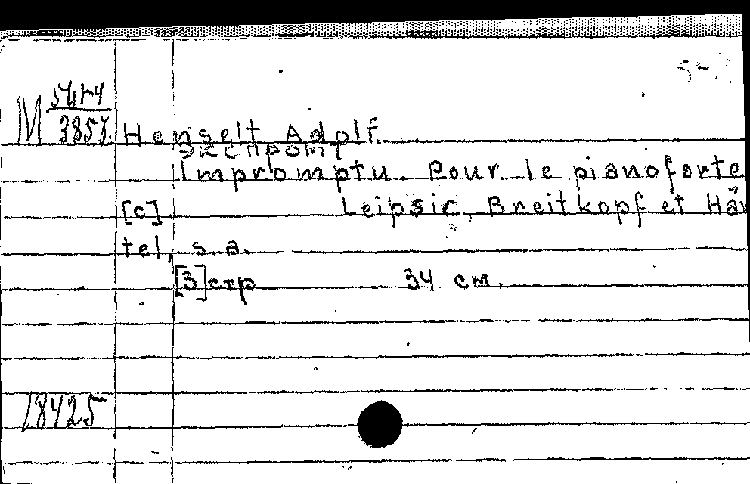 M 3857
Henselt Adolf.
Экспромт
Impromptu. Pour le pianoforte
[c] Leipsic, Breitkopf et Här
tel, s.a.
[3]стр 34 см.
18425